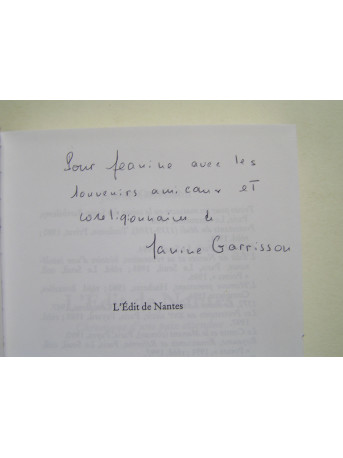 Pour Jeanine avec les
souvenirs amicaux et
coreligionnaire de
Janine Garrisson
L'Édit de Nantes